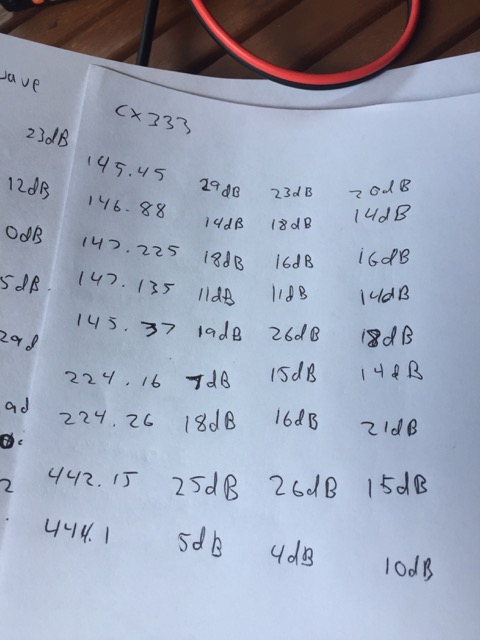 wave
23dB
12dB
0dB
5dB.
ad
2
CX333
145.45 29dB 23dB 20dB
146.88 14dB 18dB 14dB
147.225 18dB 16dB 16dB
147.135 11dB 11dB 14dB
145.37 19dB 26dB 18dB
224.16 7dB 15dB 14dB
224.26 18dB 16dB 21dB
442.15 25dB 26dB 15dB
444.1 5dB 4dB 10dB